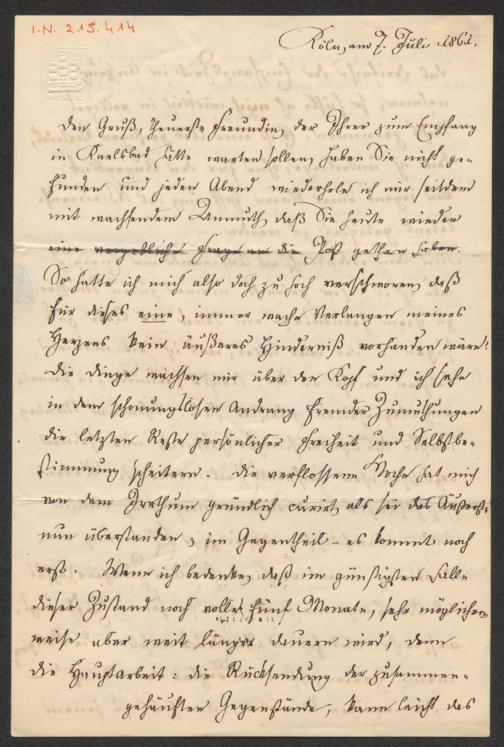 I.N. 213.414
Köln, am 7. Juli 1861.
Den Gruß, theuerste Freundin, der Ihrer zum Empfang
in Karlsbad hätte warten sollen, haben Sie nicht ge-
funden und jeden Abend wiederhole ich mir seitdem
mit wachsendem Unmuth, daß Sie heute wieder
eine vergebliche Frage an die Post gethan haben.
So hatte ich mich also doch zu hoch verschworen, daß
für dieses eine, immer wache Verlangen meines
Herzens kein äußeres Hinderniß vorhanden wäre!
Die Dinge wachsen mir über den Kopf und ich sehe
in dem schonungslosen Andrang fremder Zumuthungen
die letzten Reste persönlicher Freiheit und Selbstbe-
stimmung scheitern. Die verflossene Woche hat mich
von dem Irrthum gründlich curirt, als sei das Äußerste
nun überstanden; im Gegentheil - es kommt noch
erst. Wenn ich bedenke, daß im günstigsten Falle
dieser Zustand noch volle fünf Monate, sehr möglicher-
weise aber weit länger dauern wird, denn
die Hauptarbeit: die Rücksendung der zusammen-
gehäuften Gegenstände, kann leicht das